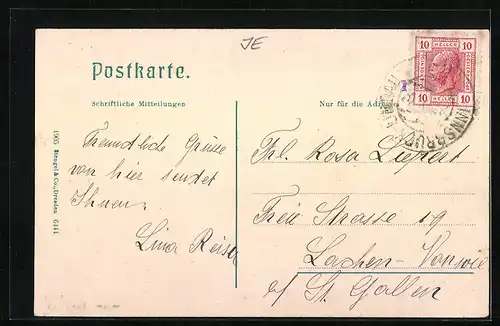 JE
Postkarte.
Schriftliche Mitteilungen
Nur für die Adresse
10 HELLER 10
10 10
INNSBRUCK
1905 Stengel & Co., Dresden 6441
Freundliche Grüsse
von hier sendet
Ihnen
Lina
Frl. Rosa
Freie Strasse 19
Lachen-Vonwil
a/ St. Gallen